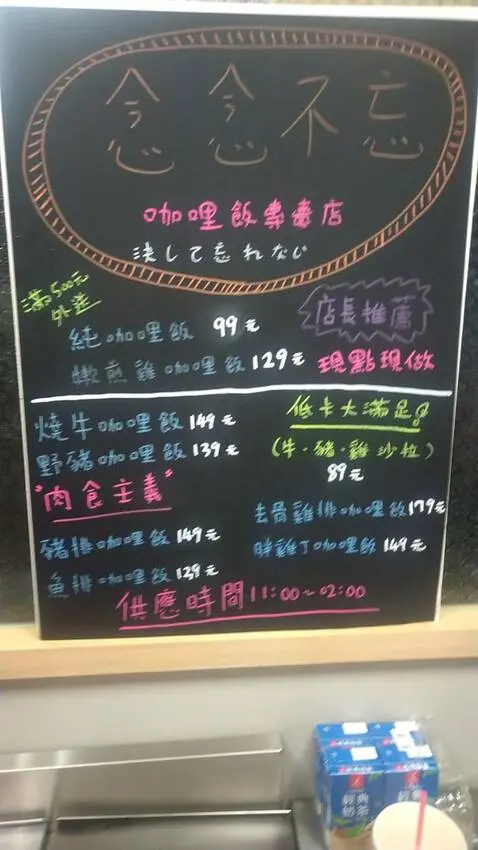 念念不忘
咖哩飯專賣店
決して忘れない
滿500元
外送
純咖哩飯 99元
嫩煎雞咖哩飯 129元
店長推薦
現點現做
燒牛咖哩飯 149元
野豬咖哩飯 139元
"肉食主義"
豬排咖哩飯 149元
魚排咖哩飯 139元
低卡大滿足
(牛·豬·雞沙拉)
89元
去骨雞排咖哩飯 179元
胖雞丁咖哩飯 149元
供應時間 11:00~02:00
經典
奶茶
經典